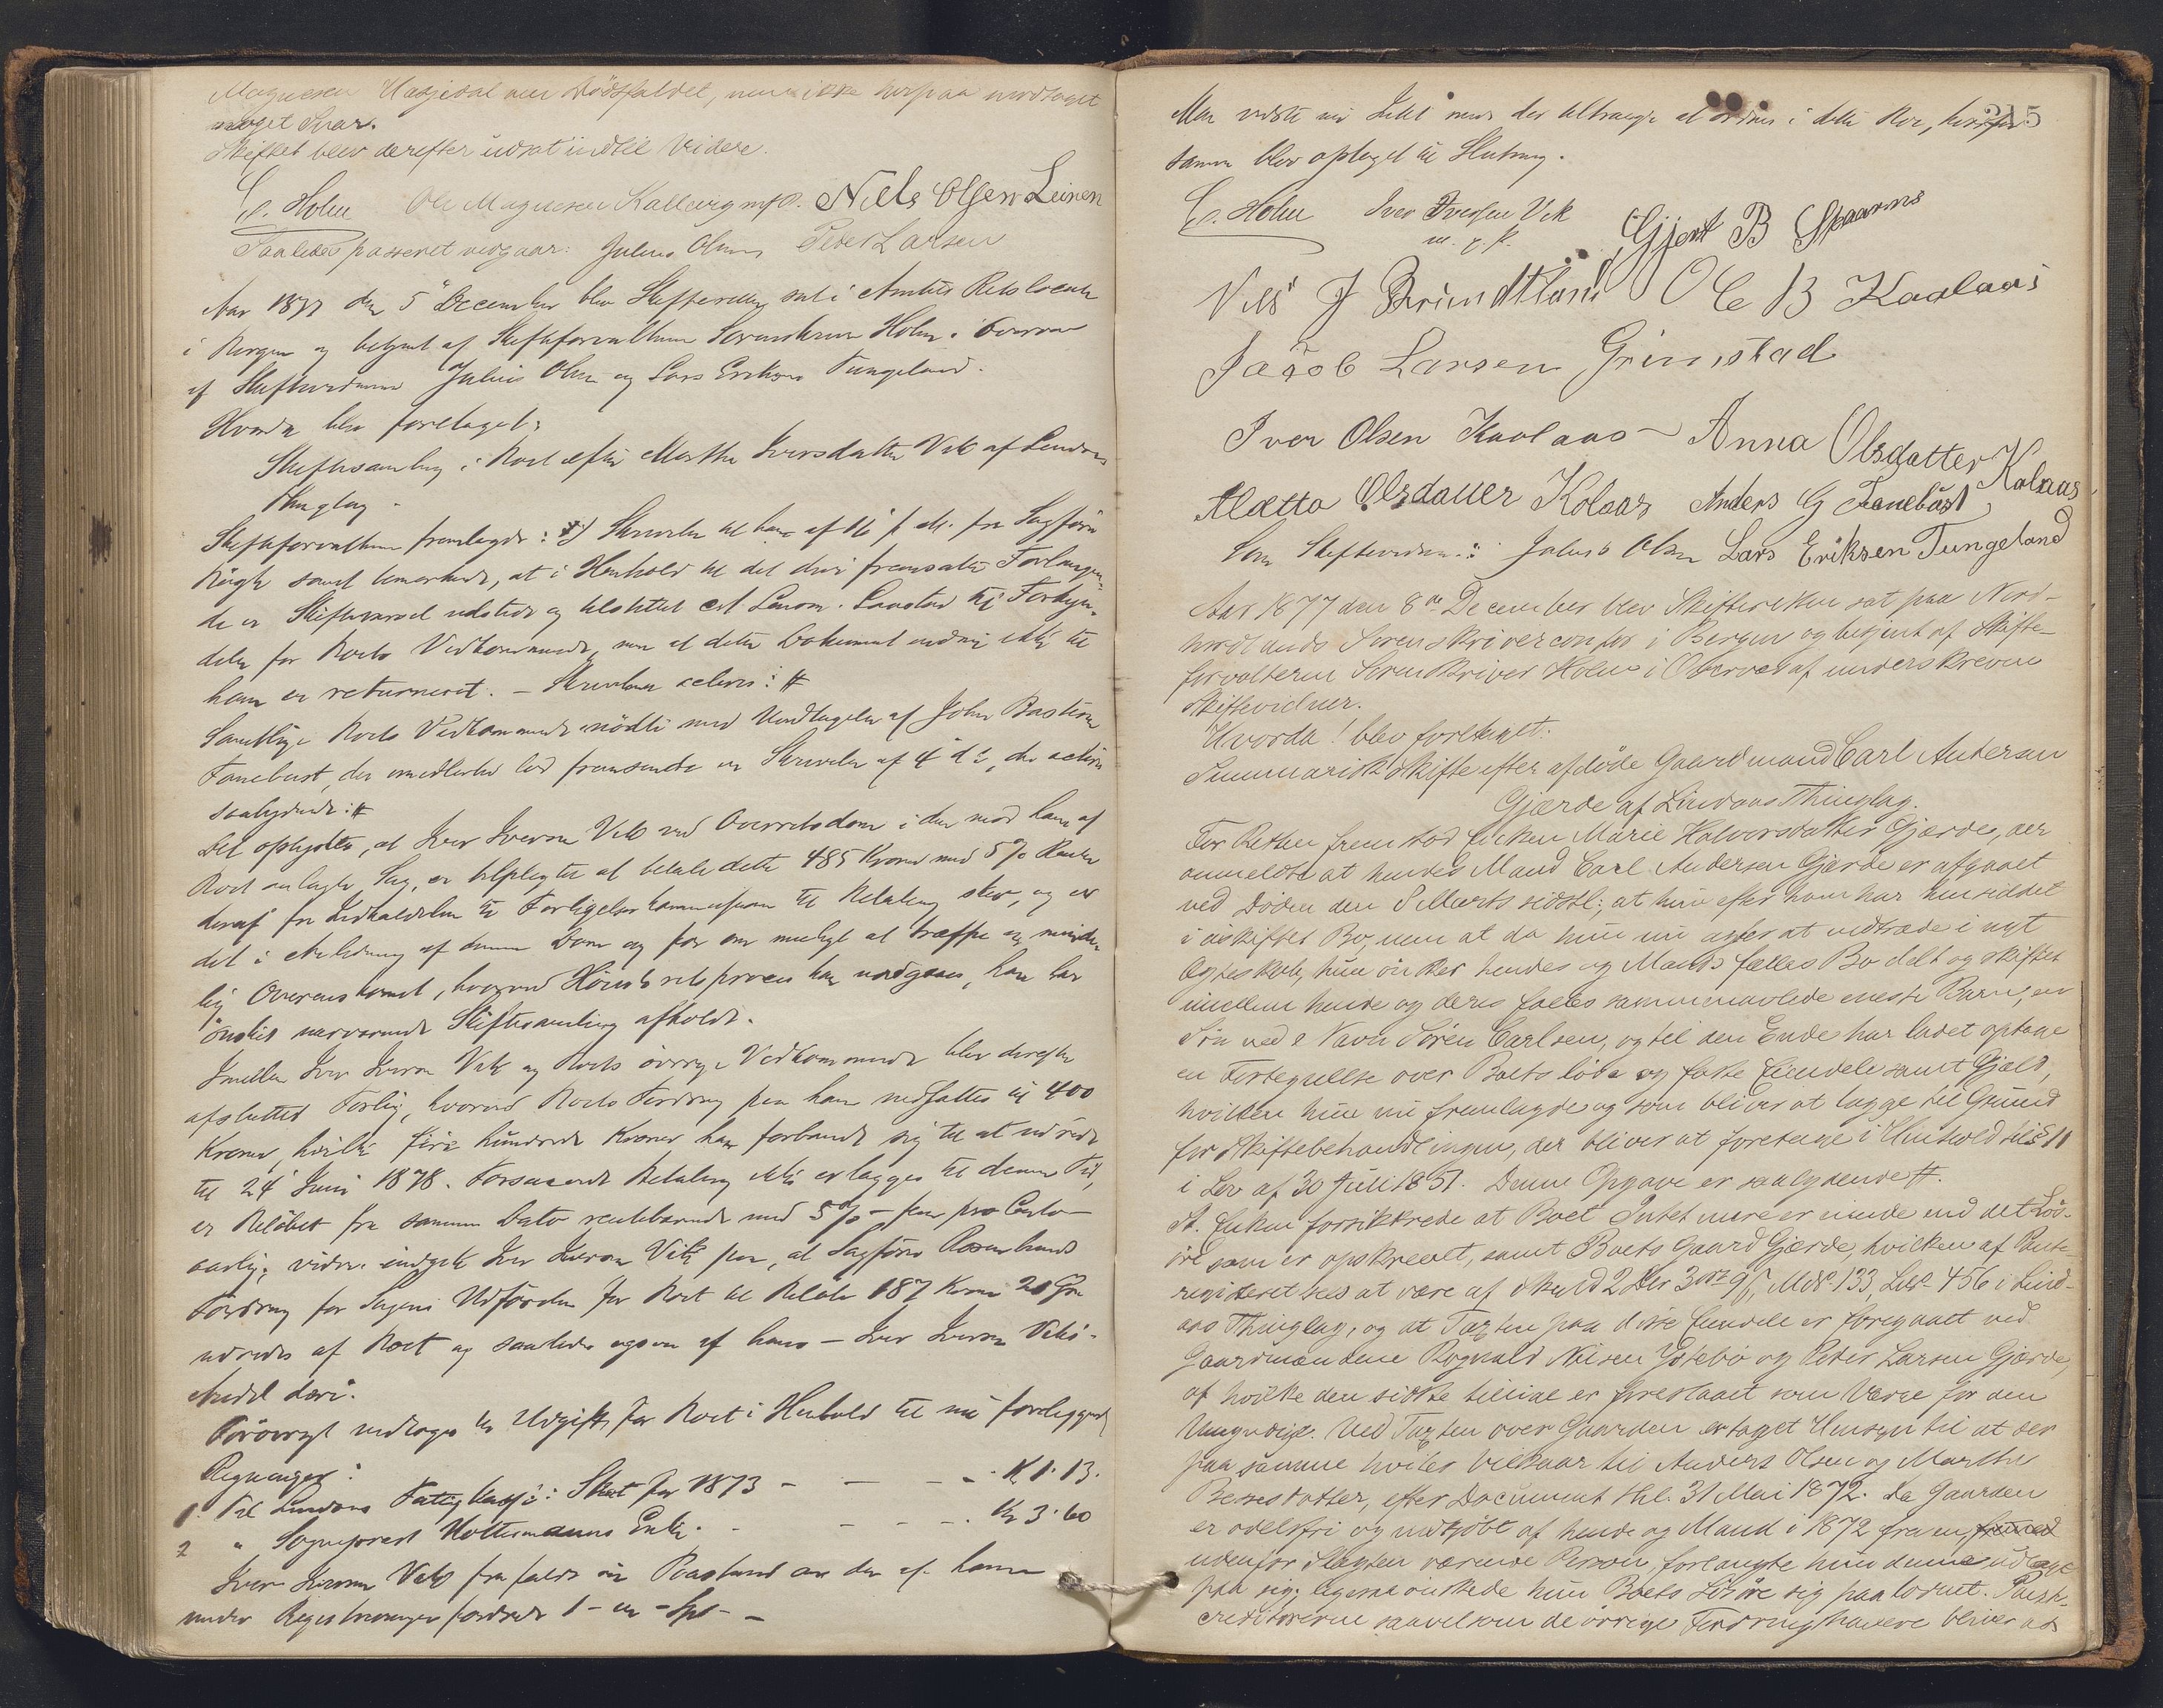 Magnesen Hasjedal om Dödsfaldet, men ikke herpaa modtaget
noget Svar.
Skiftet blev derefter udsat indtil Videre.
C. Holm Ole Magnesen Kallevig mfP. Niels Olsen Leiren
Saaledes passeret vedgaar: Julius Olsen Peder Larsen
Aar 1877 den 5 December blev Skifteretten sat i Amtets Retslocale
i Bergen og betjent af Skifteforvalteren Sorenskriver Holm i Overvær
af Skiftevidnerne Julius Olsen og Lars Eriksen Tungeland.
Hvorda blev foretaget:
Skiftesamling i Boet efter Marthe Iversdatter Vik af Lindaas
Thinglag.
Skifteforvalteren fremlagde: Skrivelse til ham af 16 f. M. fra Sagförer
samt bemærkede, at i Henhold til det deri fremsatte Forlangen-
de er Skiftevarsel udstedt og tilstillet Lensm. til Forkyn-
delse for Boets Vedkommende, men at dette Dokument endnu ikke til
ham er returneret. – Skrivelsen acteres: #
Samtlige Boets Vedkommende mödte med Undtagelse af John Bastesen
Fanebust, der imidlertid lod fremsende en Skrivelse af 4 ds, der acteres
saalydende: #
Det oplystes, at Iver Iversen Vik ved Overretsdom i den mod ham af
Boet anlagte Sag, er tilpligtet at betale dette 485 Kroner med 5 % Renter
deraf fra Indkaldelsen til Forligelseskommissionen til Betaling sker, og er
det i Anledning af denne Dom og for om muligt at træffe en mindelig
Overenskomst, hvorved Höiesteretsproces kan undgaaes, han har
önsket nærværende Skiftesamling afholdt.
Imellem Iver Iversen Vik og Boets övrige Vedkommende blev derefter
afsluttet Forlig, hvorved Boets Fordring paa ham nedsattes til 400
Kroner, hvilke fire hundrede Kroner han forbandt sig til at udrede
til 24 Juni 1878. Forsaavidt Betaling ikke erlægges til denne Tid,
er Belöbet fra samme Dato rentebærende med 5 % – fem pro Cento –
aarlig; videre indgik Iver Iversen Vik paa, at Sagförer Rosenlunds
Fordring for Sagens Udförelse for Boet til Belöb 187 Kroner 20 Öre
udredes af Boet og saaledes ogsaa af hans – Iver Iversen Viks –
Andel deri.
Forövrigt vedtoges til Udgift for Boet i Henhold til nu foreliggende
Regninger:
1. Til Lindaas Fattigkasse: Skat for 1873 – – – – K 1.13.
2 " Sogneprest Holtermanns Enke. – – – Kr 3.60
Iver Iversen Vik frafaldt sin Paastand om den af ham
under Registreringen fordrede 1 – en – Spd –
215
Man vidste nu Intet mere der tiltrængte at ordnes i dette Bo, hvorfor
samme blev optaget til Slutning.
C. Holm Iver Iversen Vik Gjert B Skaarnes
m. f. P.
Nils J Brundtland Ole B Kaalaas
Jacob Larsen Grimstad
Iver Olsen Kaalaas Anna Olsdatter Kolaas
Aletta Olsdatter Kolaas Anders G Fanebust
Som Skiftevidner: Julius Olsen Lars Eriksen Tungeland
Aar 1877 den 8de December blev Skifteretten sat paa Nord-
hordlands Sorenskrivercontor i Bergen og betjent af Skifte-
forvalteren Sorenskriver Holm i Overvær af underskrevne
Skiftevidner.
Hvorda! blev foretaget:
Summarisk Skifte efter afdöde Gaardmand Carl Andersen
Gjærde af Lindaas Thinglag.
For Retten fremstod Enken Marie Halvorsdatter Gjærde, der
anmeldte at hendes Mand Carl Andersen Gjærde er afgaaet
ved Döden den 8 Marts sidstl:, at hun efter ham har hensiddet
i uskiftet Bo, men at da hun nu agter at indtræde i nyt
Ægteskab, hun önsker hendes og Mands fælles Bo delt og skiftet
imellem hende og deres fælles sammenavlede eneste Barn, en
Sön ved Navn Sören Carlsen, og til den Ende har ladet optage
en Fortegnelse over Boets löse og faste Eiendele samt Gjæld,
hvilken hun nu fremlagde og som bliver at lægge til Grund
for Skiftebehandlingen, der bliver at foretage i Henhold til § 11
i Lov af 30 Juli 1851. Denne Opgave er saalydende #.
St. Enken forsikkrede at Boet Intet mere er eiende end det Lös-
öre som er opskrevet, samt Boets Gaard Gjærde, hvilken af Pante-
registeret sees at være af Skyld 2 Dlr 3 Ort 9 s, M.No. 133, L.No. 456 i Lind-
aas Thinglag, og at Taxten paa disse Eiendele er foregaaet ved
Gaardmændene Rognald Nilsen Ystebö og Peder Larsen Gjærde,
af hvilke den sidste tillige er foreslaaet som Værge for den
Umyndige. Ved Taxten over Gaarden er taget Hensyn til at der
paa samme hviler Vilkaar til Anders Olsen og Marthe
Bessesdatter, efter Document thl. 31 Mai 1872. Da Gaarden
er odelsfri og indkjöbt af hende og Mand i 1872 fra en fremed
udenfor Slægten værende Person, forlangte hun denne udlagt
paa sig; ligesaa önskede hun Boets Lösöre sig paalodnet. Pant-
creditorerne saavelsom de övrige Fordringshavere bliver at